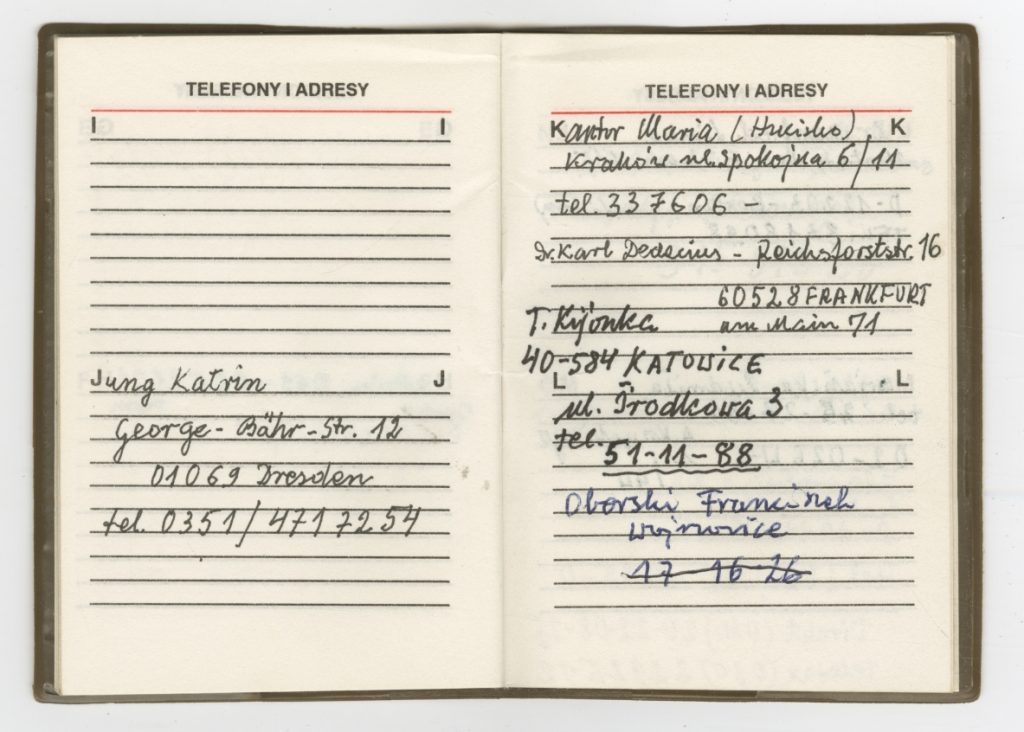 TELEFONY I ADRESY
I I
Jung Katrin J
George-Bähr-Str. 12
01069 Dresden
tel. 0351/4717254
TELEFONY I ADRESY
Kantor Maria (Hucisko) K
Kraków ul. Spokojna 6/11
tel. 337606 -
Dr. Karl Dedecius - Reichsforststr. 16
60528 FRANKFURT
am Main 71
T. Kijonka
40-584 KATOWICE
L L
ul. Środkowa 3
tel.
51-11-88
Oborski Franciszek
Wojnowice
17-16-26